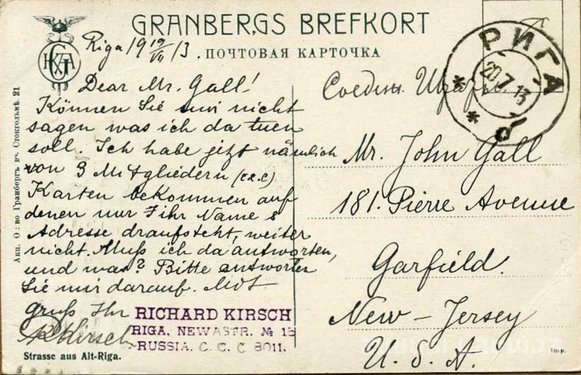 GRANBERGS BREFKORT
ПОЧТОВАЯ КАРТОЧКА
Riga 19 19/VII 13
Dear Mr. Gall!
Können Sie mir nicht
sagen was ich da tuen
soll. Ich habe jezt nämlich
von 3 Mitgliedern (c.c.c.)
Karten bekommen auf
denen nur ihr Name &
Adresse draufsteht, weiter
nicht. Muß ich da antworten,
und was? Bitte antworten
Sie mir darauf. Mit
gruß Ihr
RKirsch
RICHARD KIRSCH
RIGA, NEWASTR. № 13
RUSSIA. C. C. C 8011.
Strasse aus Alt-Riga.
Акц. О:во Гранбергъ въ Стокгольмѣ 21
РИГА
20.7.13
Соедин.
Mr. John Gall
181. Pierre Avenue
Garfield.
New-Jersey
U. S. A.
Imp.